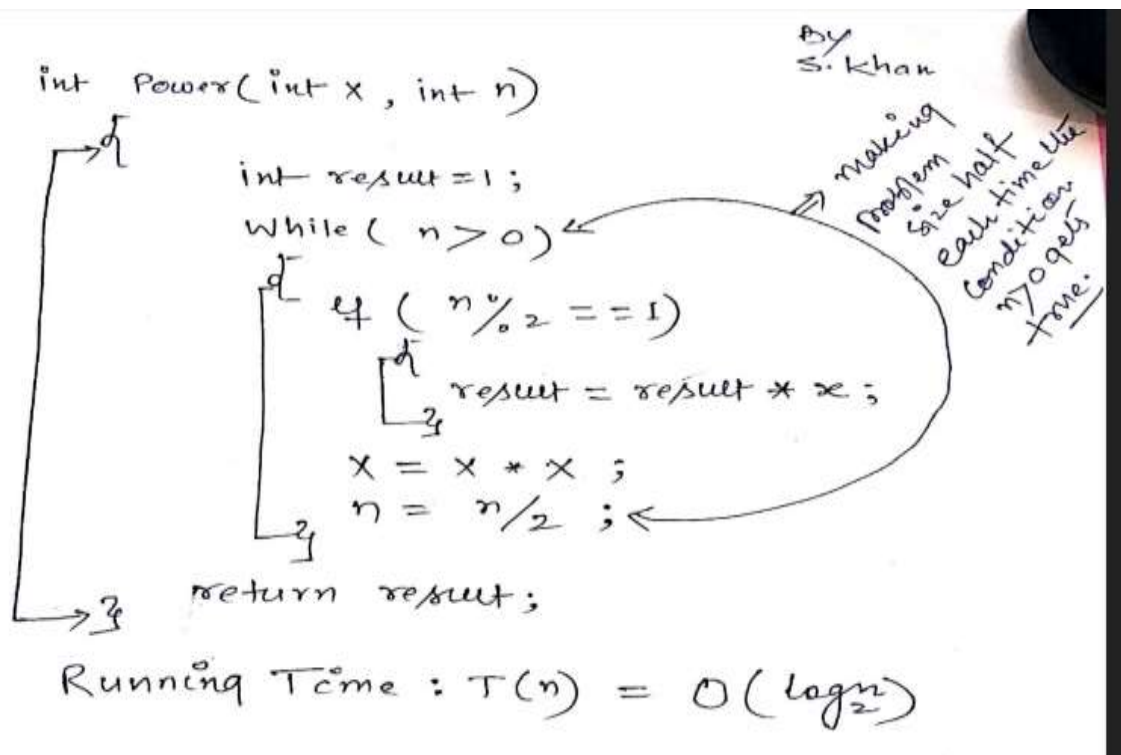 By
S. Khan
int Power( int x , int n)
{
int result = 1 ;
While ( n > 0)
{
if ( n % 2 == 1)
{
result = result * x ;
}
x = x * x ;
n = n/2 ;
}
return result ;
}
making
problem
size half
each time the
condition
n>0 gets
true.
Running Time : T(n) = O( log₂n )